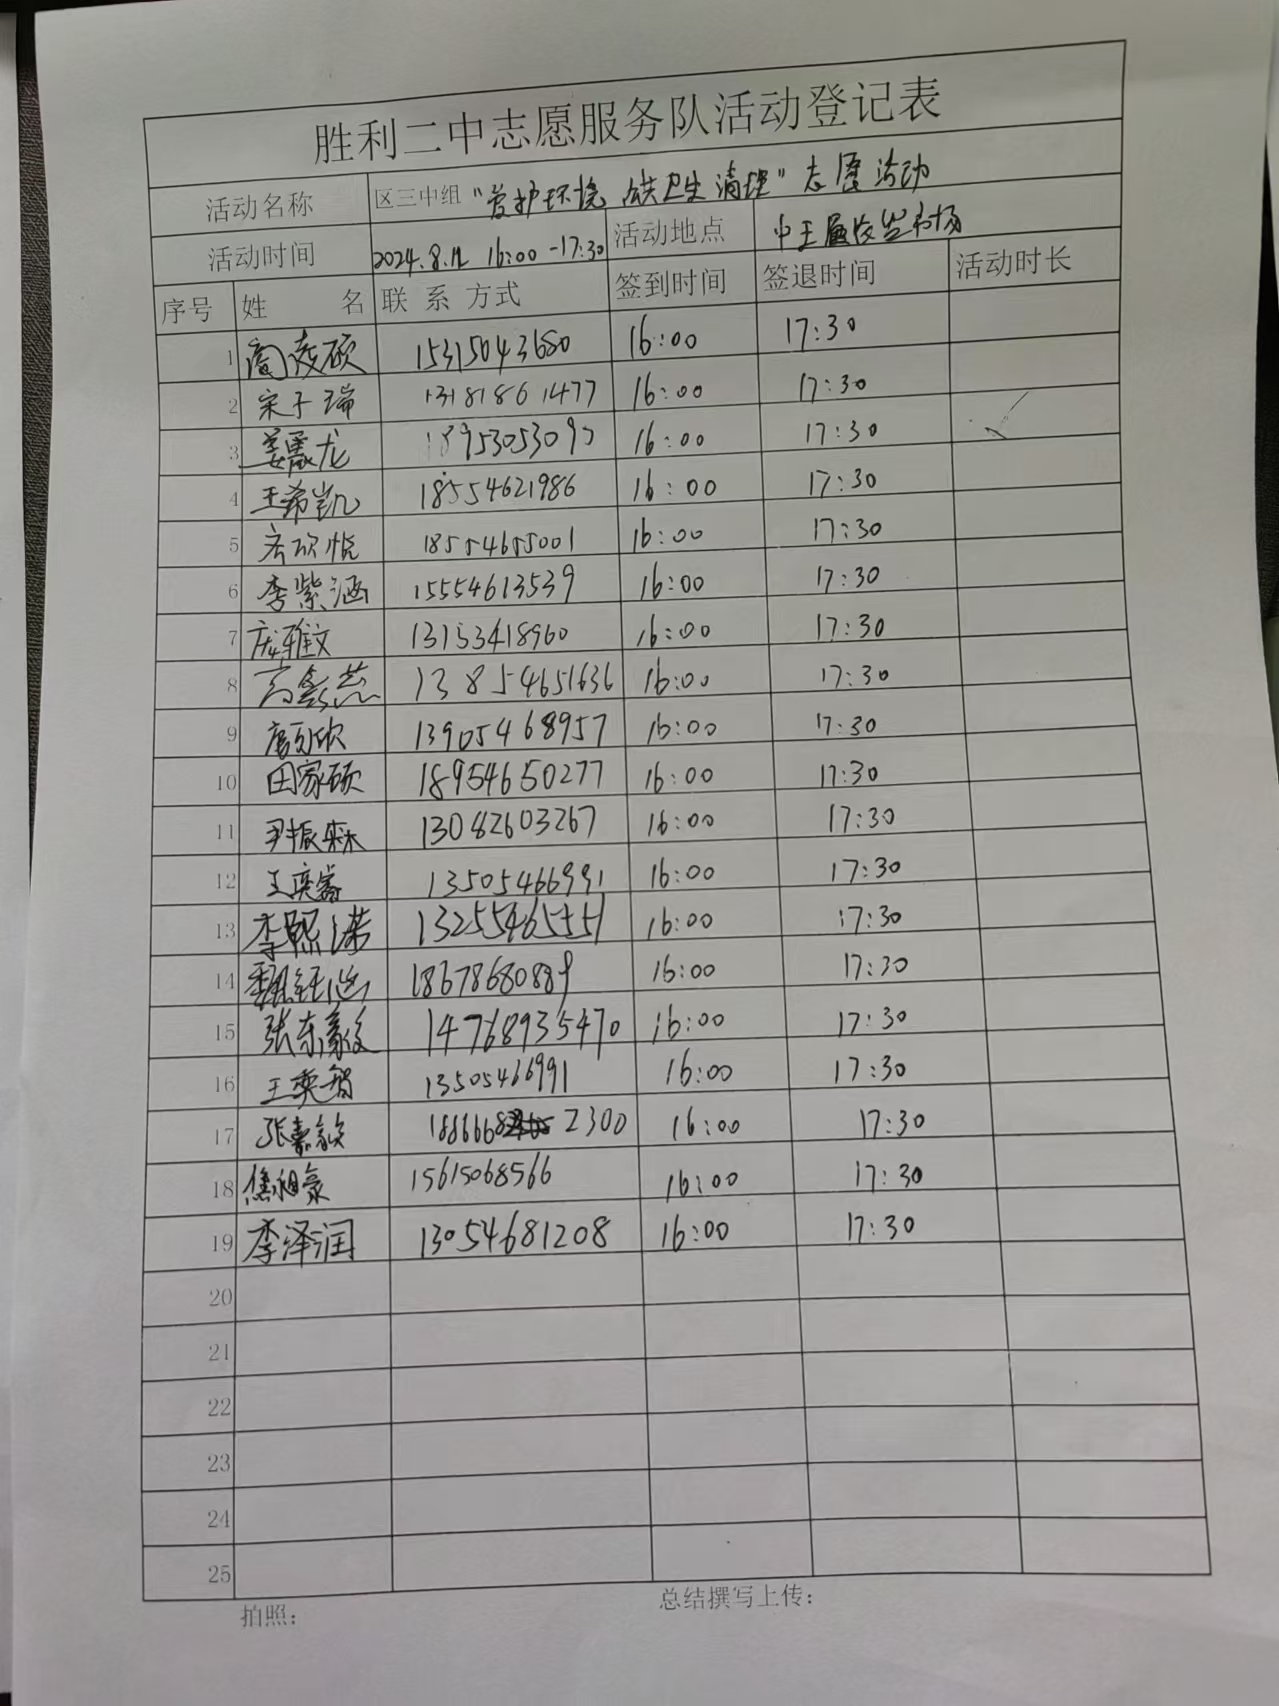 胜利二中志愿服务队活动登记表
活动名称 区三中组 "爱护环境 公共卫生清理" 志愿活动
活动时间 2024.8.12 16:00-17:30 活动地点
序号 姓 名 联 系 方式 签到时间 签退时间 活动时长
1 阎凌硕 15315043680 16:00 17:30
2 宋子瑞 13181861477 16:00 17:30
3 姜晟龙 16:00 17:30
4 王希凯 18554621986 16:00 17:30
5 18554655001 16:00 17:30
6 李紫涵 15554613539 16:00 17:30
7 庞雅文 13153418960 16:00 17:30
8 13854651636 16:00 17:30
9 13905468957 16:00 17:30
10 田家硕 18954650277 16:00 17:30
11 尹振霖 13082603267 16:00 17:30
12 13505466991 16:00 17:30
13 李熙诺 13255465551 16:00 17:30
14 18678680889 16:00 17:30
15 14768935470 16:00 17:30
16 王奕智 13505466991 16:00 17:30
17 张嘉毅 1886668 2300 16:00 17:30
18 15615068566 16:00 17:30
19 李泽润 13054681208 16:00 17:30
20
21
22
23
24
25
拍照： 总结撰写上传：